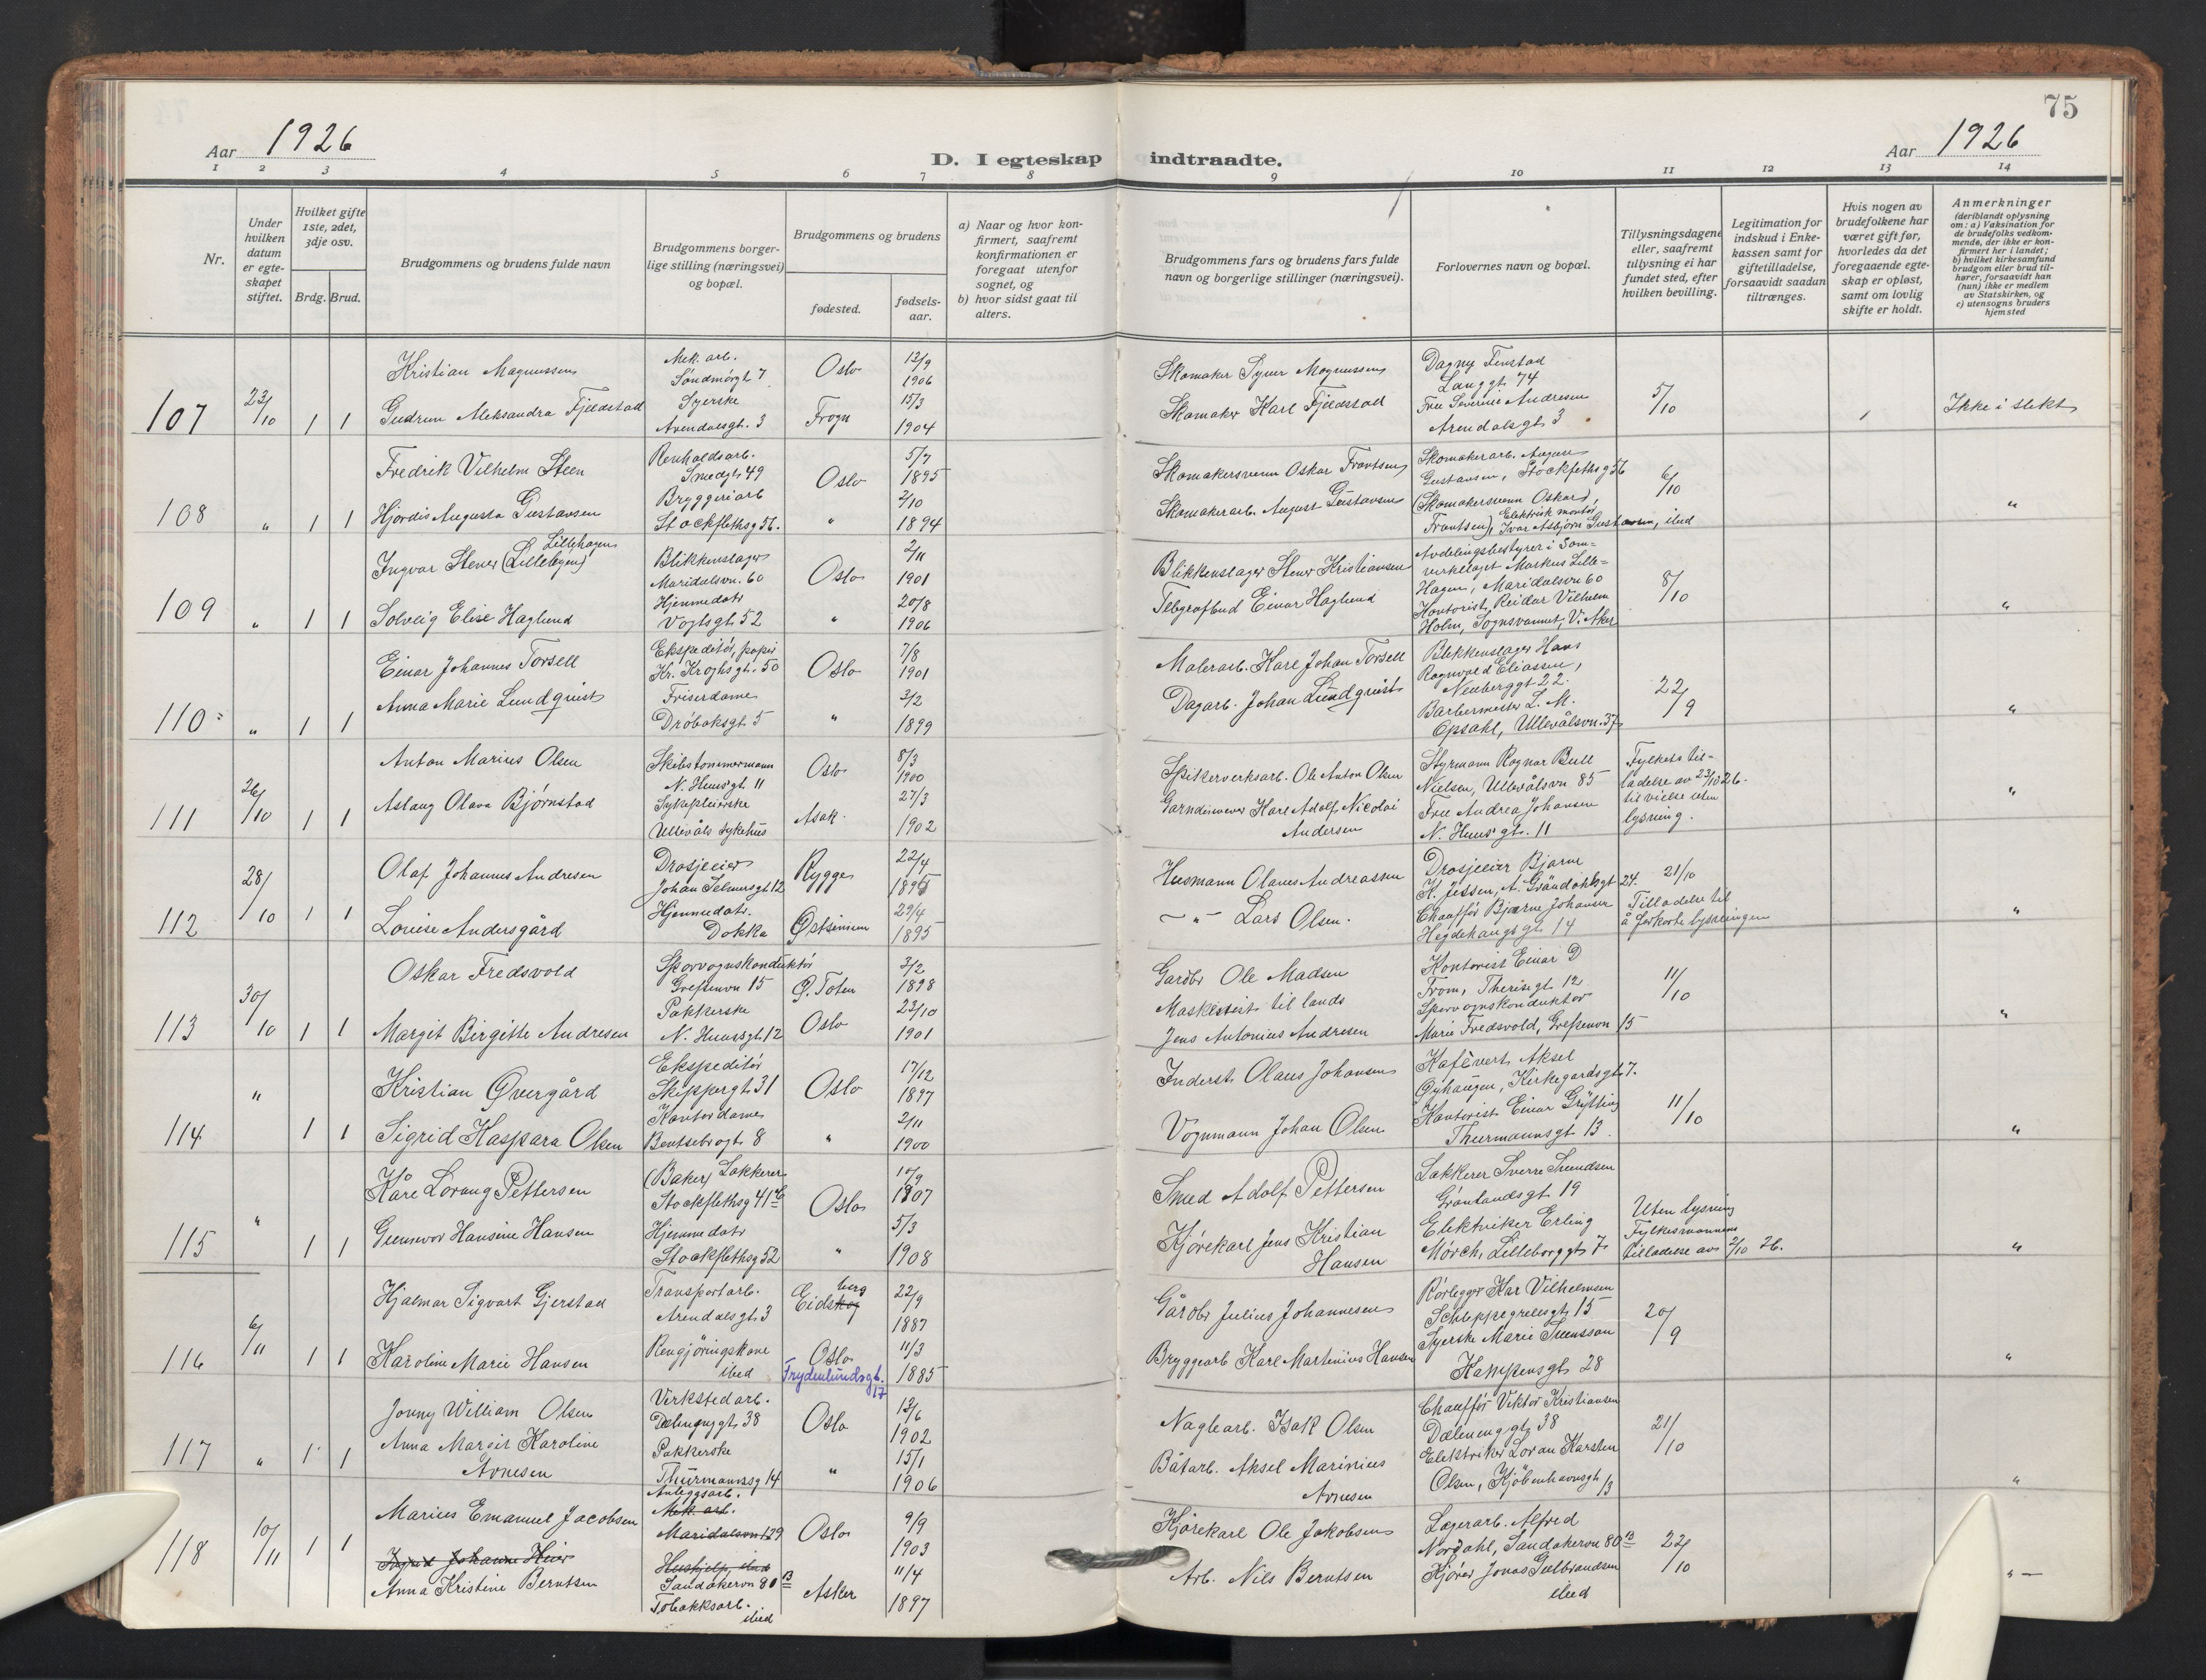 75
Aar 1926
D. I egteskap indtraadte.
Aar 1926
1 2 3 4 5 6 7 8 9 10 11 12 13 14
Nr.
Under hvilken datum er egteskapet stiftet.
Hvilket gifte 1ste, 2det, 3dje osv.
Brdg. Brud.
Brudgommens og brudens fulde navn
Brudgommens borgerlige stilling (næringsvei) og bopæl.
Brudgommens og brudens
fødested.
fødselsaar.
a) Naar og hvor konfirmert, saafremt konfirmationen er foregaat utenfor sognet, og
b) hvor sidst gaat til alters.
Brudgommens fars og brudens fars fulde navn og borgerlige stillinger (næringsvei).
Forlovernes navn og bopæl.
Tillysningsdagene eller, saafremt tillysning ei har fundet sted, efter hvilken bevilling.
Legitimation for indskud i Enkekassen samt for giftetilladelse, forsaavidt saadan tiltrænges.
Hvis nogen av brudefolkene har været gift før, hvorledes da det foregaaende egteskap er opløst, samt om lovlig skifte er holdt.
Anmerkninger
(deriblandt oplysning om: a) Vaksination for de brudefolks vedkommende, der ikke er konfirmert her i landet; b) hvilket kirkesamfund brudgom eller brud tilhører, forsaavidt han (hun) ikke er medlem av Statskirken, og c) utensogns bruders hjemsted
107 23/10 1 1
Kristian Magnussen Mek. arb. Søndmørgt. 7 Oslo 12/9 1906
Gudrun Aleksandra Fjeldstad Syerske Arendalsgt. 3 Frogn 15/3 1904
Skomaker Syver Magnussen
Skomaker Karl Fjeldstad
Dagny Finstad
Langgt. 74
Fru Severine Andresen
Arendalsgt. 3
5/10 Ikke i slekt
108 " 1 1
Fredrik Vilhelm Steen Renholdsarb. Smedgt. 49 Oslo 5/7 1895
Hjørdis Augusta Gustavsen Bryggeriarb Stockflethsg 56. " 2/10 1894
Skomakersvenn Oskar Frantsen
Skomakerarb. August Gustavsen
Skomakerarb. August
Gustavsen, Stockflethsg 56
(Skomakersvenn Oskar
Frantsen), Elektrisk montør Ivar Asbjørn Gustavsen, ibid
6/10 "
109 " 1 1
Ingvar Stener (Lillehegen) Lillehagen Blikkenslager Maridalsvn. 60 Oslo 2/11 1901
Solveig Elise Haglund Hjemmedatr Vogtsgt. 52 " 20/8 1906
Blikkenslager Stener Kristiansen
Telegrafbud Einar Haglund
Avdelingsbestyrer i Sam-
virkelaget Markus Lille-
Hagen, Maridalsvn 60
Kontorist Reidar Vilhelm
Holm, Sognsvannet, V. Aker
8/10 "
110 " 1 1
Einar Johannes Torsell Ekspeditør, papir Kr. Kroghsgt. 50 Oslo 7/8 1901
Anna Marie Lundquist Friserdame Drøbaksgt. 5 " 3/2 1899
Malerarb. Karl Johan Torsell
Dagarb. Johan Lundquist
Blikkenslager Hans
Ragnvald Eliassen,
Neuberggt 22.
Barbermester L. M.
Opsahl, Ullevålsvn. 37
22/9 "
111 26/10 1 1
Anton Marius Olsen Skibstømmermann N. Huusgt. 11 Oslo 8/3 1900
Aslaug Olava Bjørnstad Sykepleierske Ullevåls sykehus Asak. 27/3 1902
Spikerverksarb. Ole Anton Olsen
Garndreiver Karl Adolf Nicolai
Andersen
Styrmann Ragnar Bull
Nielsen, Ullevålsvn 85
Fru Andrea Johansen
N. Huusgt. 11
Fylkets til-
ladelse av 23/10 26.
til vielse uten
lysning.
"
112 28/10 1 1
Olaf Johannes Andresen Drosjeeier Johan Selmersgt 12 Rygge 22/4 1895
Louise Andersgård Hjemmedatr. Dokka Østsinnen 29/4 1895
Husmann Olaves Andreassen
— " — Lars Olsen.
Drosjeeier Bjarne
K. Jessen, A. Grøndahlsgt 24.
Chauffør Bjarne Johansen
Hegdehaugsgt. 14
21/10
Tilladelse til
å forkorte lysningen
"
113 30/10 1 1
Oskar Fredsvold Sporvognskonduktør Grefsenvn 15 Ø. Toten 3/2 1898
Margit Birgitte Andresen Pakkerske N. Huusgt. 12 Oslo 23/10 1901
Gårdbr Ole Madsen
Maskinist til lands
Jens Antonius Andresen
Kontorist Einar D
From, Theresgt. 12
Sporvognskonduktør
Marie Fredsvold, Grefsenvn 15
11/10 "
114 " 1 1
Kristian Øvergård Ekspeditør Skippergt. 31 Oslo 17/12 1897
Sigrid Kaspara Olsen Kontordame Bentsebrogt. 8 " 2/11 1900
Inderst Olaus Johansen
Vognmann Johan Olsen
Kafévert Aksel
Øyhaugen, Kirkegardsgt 7.
Kontorist Einar Grytting
Thurmannsgt 13.
11/10 "
115 " 1 1
Kåre Lorang Pettersen (Baker) Lakkerer Stockflethsg 41 c Oslo 10/9 1907
Gunnvor Hansine Hansen Hjemmedatr Stockflethsg 52 " 5/3 1908
Smed Adolf Pettersen
Kjørekarl Jens Kristian
Hansen
Lakkerer Sverre Svendsen
Grønlandsgt. 19
Elektriker Erling
Mørch, Lilleborggt 7
Uten lysning
Fylkesmannens
tilladelse av 2/10 26.
"
116 6/11 1 1
Hjalmar Sigvart Gjerstad Transportarb. Arendalsgt. 3 Eidskog berg 22/9 1887
Karoline Marie Hansen Rengjøringskone ibid Oslo Frydenlundsgt. 17 11/3 1885
Gårdbr Julius Johannesen
Bryggearb Karl Martinius Hansen
Rørlegger Kar Vilhelmsen
Schleppegrellsgt. 15
Syerske Marie Svensson
Kampensgt. 28
20/9 "
117 " 1 1
Jonny William Olsen Verkstedarb. Dælenenggt. 38 Oslo 13/6 1902
Anna Margit Karoline
Arnesen Pakkerske Thurmannsg 14 " 15/1 1906
Naglearb. Isak Olsen
Båtarb. Aksel Marinius
Arnesen
Chauffør Viktor Kristiansen
Dælenenggt. 38
Elektriker Loran Karsten
Olsen, Kjøbenhavnsgt. 13
21/10 "
118 10/11 1 1
Marius Emanuel Jacobsen Anleggsarb. Mek. arb. Maridalsvn 129 Oslo 9/9 1903
Ingrid Johanne Heier Hushjelp, ibid Sandakervn 80 B
Anna Kristine Berntsen Tobakksarb. ibid Asker 11/4 1897
Kjørekarl Ole Jakobsen
Arb. Nils Berntsen
Lagerarb. Alfred
Nordahl, Sandakervn 80 B
Kjører Jonas Gulbrandsen
ibid
22/10 " —